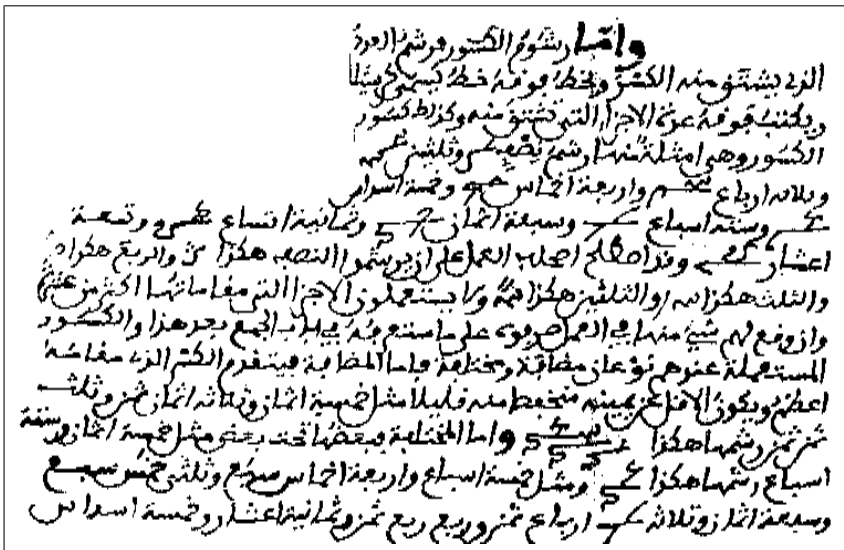 واما رشوم الكسور فرشم العدد
الذي يشتق منه الكسر ويخط فوقه خط كيسمى
ويكتب فوقه عدة الاجزا التي تشتق منه وكذلك كسور
الكسور وهي امثلة منها رشم نصف وثلثين
وثلاثة ارباع واربعة اخماس وخمسة اسداس
وستة اسباع وسبعة اثمان وثمانية اتساع وتسعة
اعشار وقد اصطلح اصحاب العمل على ان يرشموا النصف هكذا والربع هكذا
والثلث هكذا والثلثين هكذا ولا يستعملون الاجزا التي مقاماتها اكثر من عشرة
وان وقع لهم شيء منها في العمل على ما ستعرفه في باب الجمع بعد هذا والكسور
المستعملة عندهم نوعان مضافة ومختلفة فاما المضافة فيتقدم الكسر الذي مقامه
اعظم ويكون الاقل عن يمينه منخفظ منه قليلا مثل خمسة اثمان وثلاثة اثمان ثمن وثلث
ثمن ثمن رشمها هكذا واما المختلفة فبعضها تحت بعض مثل خمسة اثمان وستة
اسباع رشمها هكذا ومثل خمسة اسباع واربعة اخماس سبع وثلثي خمس سبع
وسبعة اثمان وثلاثة ارباع ثمن وربع ربع ثمن وثمانية اعشار وخمسة اسداس